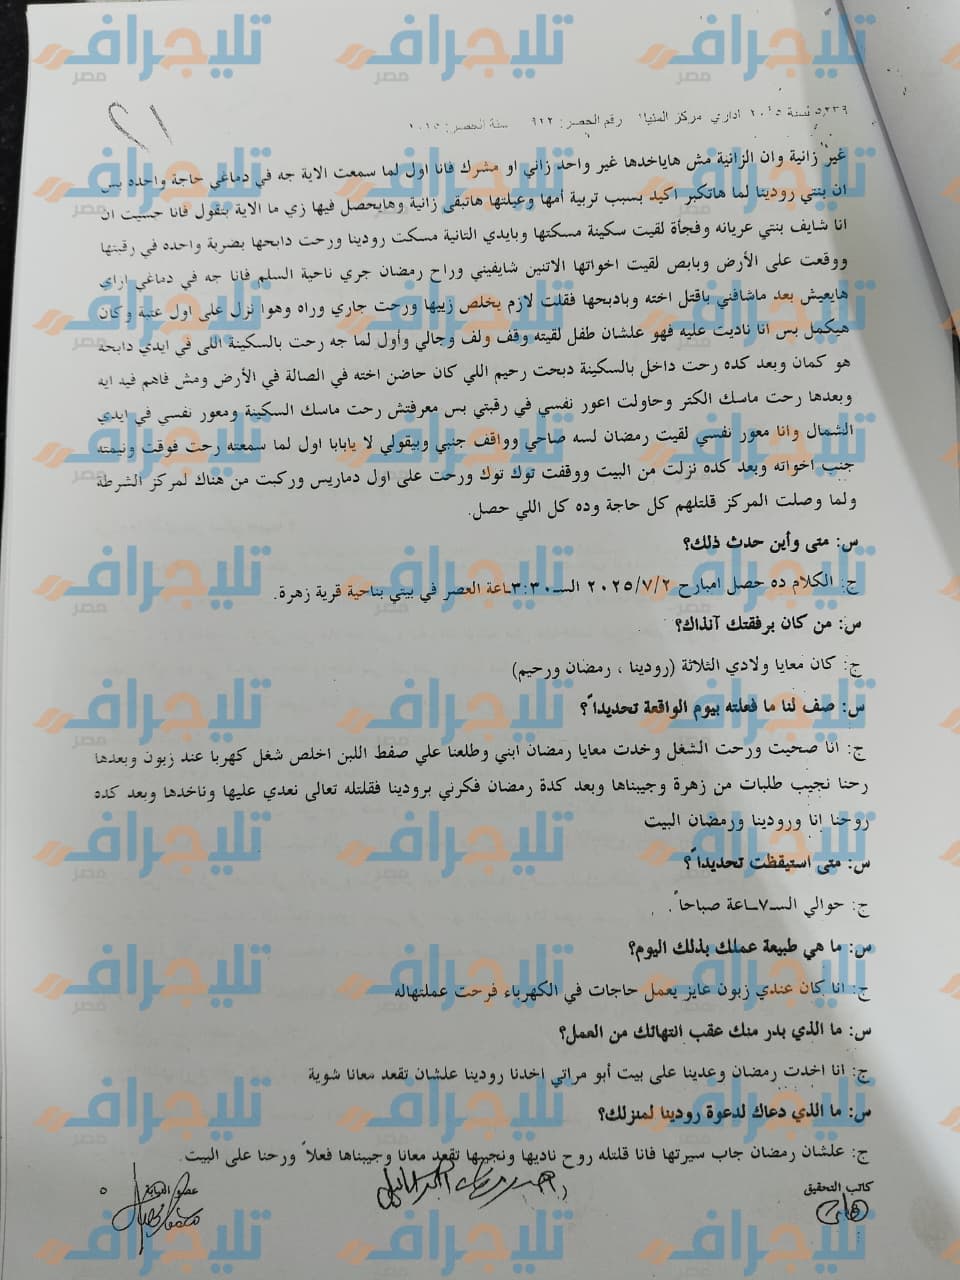 ٥٢٣٩ لسنة ٢٠٢٥ اداري مركز المنيا رقم الحصر: ٩١٢ سنة الحصر: ٢٠٢٥
غير زانية وان الزانية مش هاياخدها غير واحد زاني او مشرك فانا اول لما سمعت الاية جه في دماغي حاجة واحده بس
ان بنتي رودينا لما هاتكبر اكيد بسبب تربية أمها وعيلتها هاتبقى زانية وهايحصل فيها زي ما الاية بتقول فانا حسيت ان
انا شايف بنتي عريانه وفجأة لقيت سكينة مسكتها وبايدي التانية مسكت رودينا ورحت دابحها بضربة واحده في رقبتها
ووقعت على الأرض وبابص لقيت اخواتها الاتنين شايفيني وراح رمضان جري ناحية السلم فانا جه في دماغي ازاي
هايعيش بعد ماشافني باقتل اخته وبادبحها فقلت لازم يخلص زييها ورحت جاري وراه وهوا نزل على اول عتبة وكان
هيكمل بس انا ناديت عليه فهو علشان طفل لقيته وقف ولف وجالي وأول لما جه رحت بالسكينة اللى في ايدي دابحه
هو كمان وبعد كده رحت داخل بالسكينة دبحت رحيم اللي كان حاضن اخته في الصالة في الأرض ومش فاهم فيه ايه
وبعدها رحت ماسك الكتر وحاولت اعور نفسي في رقبتي بس معرفتش رحت ماسك السكينة ومعور نفسي في ايدي
الشمال وانا معور نفسي لقيت رمضان لسه صاحي وواقف جنبي وبيقولي لا يابابا اول لما سمعته رحت فوقت ونيمته
جنب اخواته وبعد كده نزلت من البيت ووقفت توك توك ورحت على اول دماريس وركبت من هناك لمركز الشرطة
ولما وصلت المركز قلتلهم كل حاجة وده كل اللي حصل.
س: متى وأين حدث ذلك؟
ج: الكلام ده حصل امبارح ٢٠٢٥/٧/٢ الســ٣:٣٠ــاعة العصر في بيتي بناحية قرية زهرة.
س: من كان برفقتك آنذاك؟
ج: كان معايا ولادي الثلاثة (رودينا ، رمضان ورحيم)
س: صف لنا ما فعلته بيوم الواقعة تحديداً؟
ج: انا صحيت ورحت الشغل وخدت معايا رمضان ابني وطلعنا علي صفط اللبن اخلص شغل كهربا عند زبون وبعدها
رحنا نجيب طلبات من زهرة وجيبناها وبعد كدة رمضان فكرني برودينا فقلتله تعالى نعدي عليها وناخدها وبعد كده
روحنا انا ورودينا ورمضان البيت
س: متى استيقظت تحديداً؟
ج: حوالي الســ٧ــاعة صباحاً.
س: ما هي طبيعة عملك بذلك اليوم؟
ج: انا كان عندي زبون عايز يعمل حاجات في الكهرباء فرحت عملتهاله
س: ما الذي بدر منك عقب انتهائك من العمل؟
ج: انا اخدت رمضان وعدينا على بيت أبو مراتي اخدنا رودينا علشان تقعد معانا شوية
س: ما الذي دعاك لدعوة رودينا لمنزلك؟
ج: علشان رمضان جاب سيرتها فانا قلتله روح ناديها ونجيبها تقعد معانا وجيبناها فعلاً ورحنا على البيت
كاتب التحقيق
عضو النيابة
تليجراف مصر